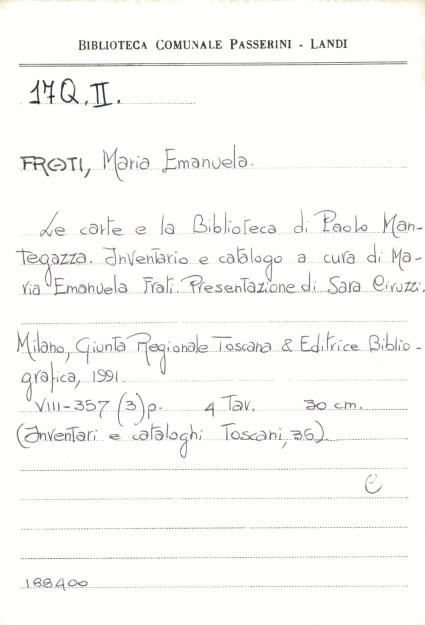 BIBLIOTECA COMUNALE PASSERINI - LANDI
17Q.II.
FRATI, Maria Emanuela.
Le carte e la Biblioteca di Paolo Man-
tegazza. Inventario e catalogo a cura di Ma-
ria Emanuela Frati. Presentazione di Sara Ciruzzi.
Milano, Giunta Regionale Toscana & Editrice Biblio-
grafica, 1991.
VIII-357 (3) p. 4 Tav. 30 cm.
(Inventari e cataloghi Toscani, 36).
e
188400